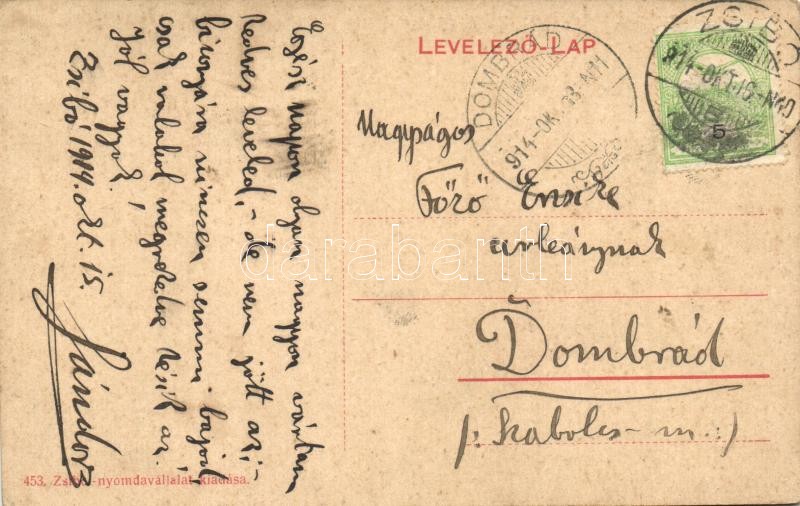 LEVELEZŐ-LAP
ZSIBÓ
914-OKT.15-N10
5
DOMBRÁD
914-OK
Nagyságos
Főző Emike
urleánynak
Dombrád
/: Szabolcs-m.:/
Egész napon olyan nagyon vártam
kedves leveled, - de nem jött az; -
bizonyára nincsen semmi bajod,
csak valahol megrekedve késik az.
Jól vagyok!
Zsibó 1914. okt. 15.
Sándor
453. Zsibó-nyomdavállalat kiadása.
darabanth